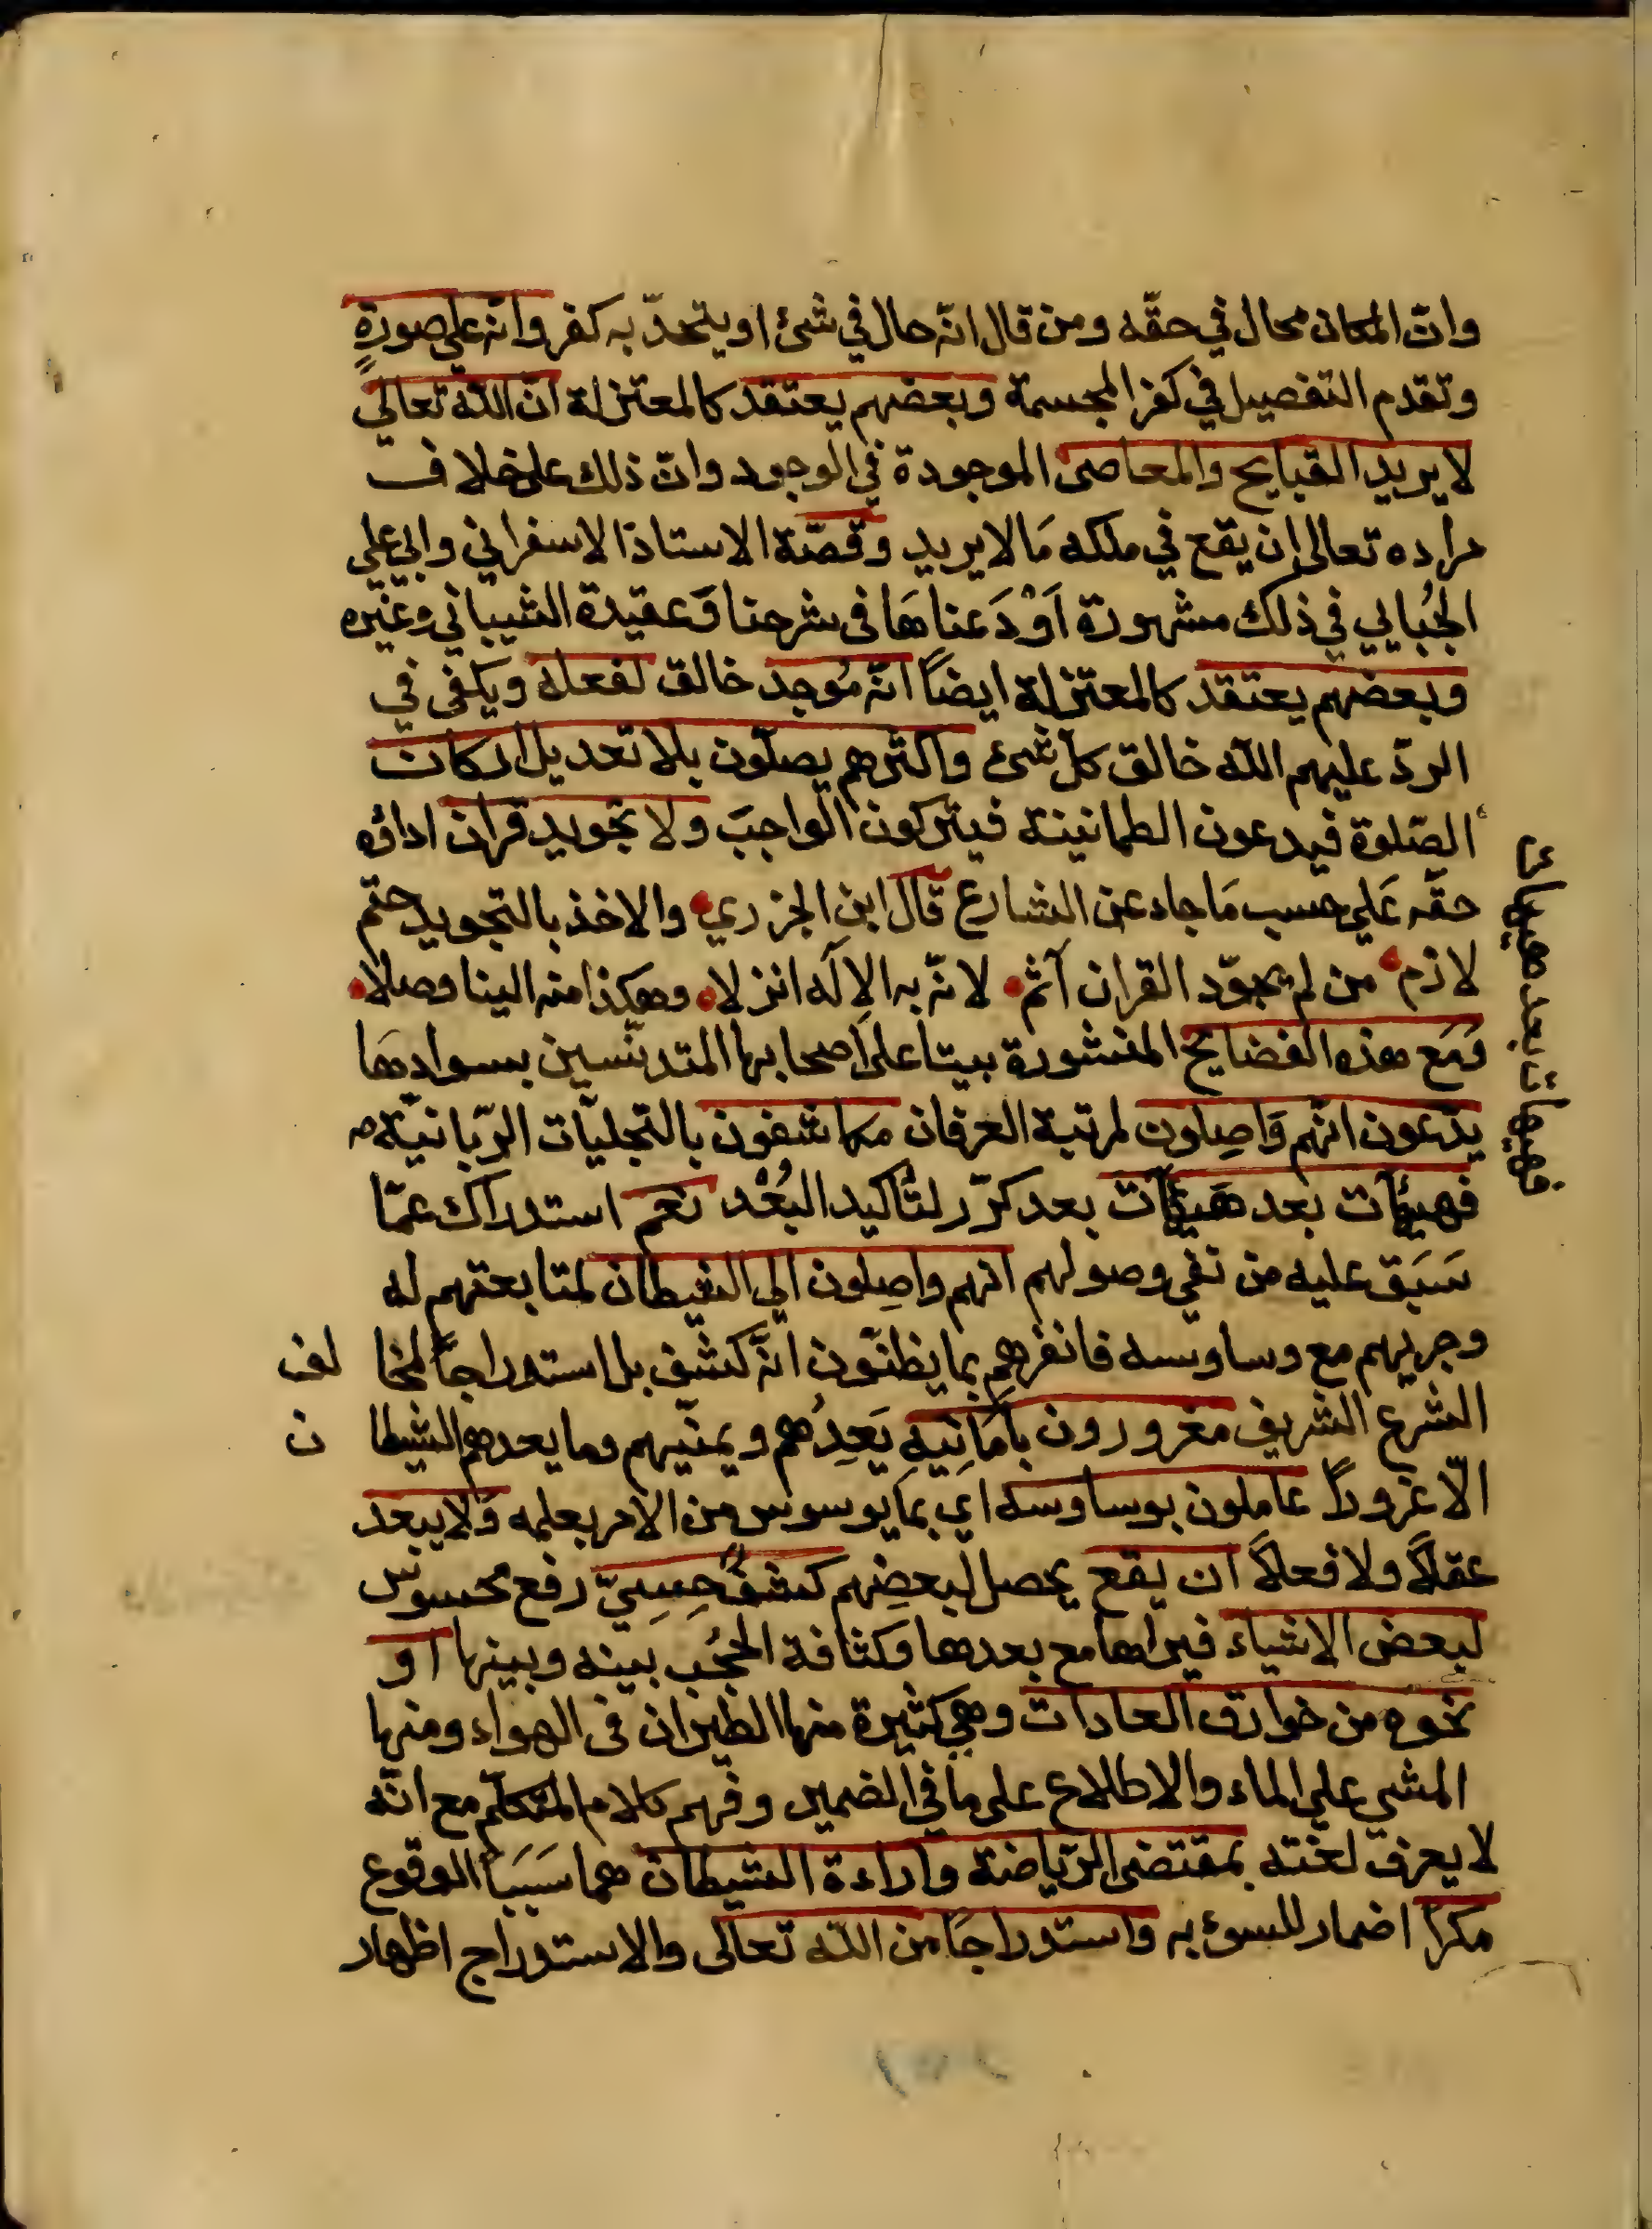 وانّ المكان محال في حقّه ومن قال انّه حال في شئ او يتحدّ به كفر وانه على صورةٍ
وتقدم التفصيل في كفر المجسمة وبعضهم يعتقد كالمعتزلة انّ الله تعالى
لا يريد القبايح والمعاصى الموجودة في الوجود وانّ ذلك على خلاف
مراده تعالى ان يقع في ملكه مَا لا يريد وقصّة الاستاذ الاسفراني وابي علي
الجُبايي في ذلك مشهورة اَوْدَعناهَا فى شرحنا عقيدة الشيباني وغيره
وبعضهم يعتقد كالمعتزلة ايضاً انّه مُوجد خالق لفعله ويكفى في
الردّ عليهم الله خالق كلّ شئ واكثرهم يصلّون بلا تعديل اركان
الصّلوة فيدعون الطمانينة فيتركون الواجبَ ولا تجويد قران اداؤه
حقّه عَلى حسب مَا جاء عن الشارع قال ابن الجزري والاخذ بالتجويد حتم
لازم من لم يجوّد القران آثم لانّه به الاِلَه انزلا وهكذا منه الينا وصلا
وَمَع هذه الفضايح المنشورة بيتا على اصحابها المتدنّسين بسوادهَا
يدّعون انهّم وَاصِلون لمرتبة العرفان مكاشفون بالتجليّات الرّبانيّة
فهيئآت بعد هَيئآت بعد كرّر لتأكيد البُعْد نعم استدراك عمّا
سَبَق عليه من نفي وصولهم انهم واصِلون الي الشيطان لمتابعتهم له
وجريهم مع وساوسه فانفرهم بما يظنّون انّه كشف بل استدراجاً لمخا لف
الشرع الشريف مغرورون باَمَانِيهِ يَعِدُهم ويمنّيهم وما يعدهم الشيطا ن
الّا غروراً عاملون بوساوسه اي بما يوسوس من الامر بعلمه وَلا يبعد
عقلاً ولا فعلاً ان يقع يحصل لبعضِهم كشفٌ حِسِيّ رفع محسوس
لبعض الاشياء فيراها مع بعدها وكثافة الحُجُب بينه وبينها او
نحوه من خوارق العادات وهي كثيرة منها الطيران فى الهواء ومنها
المشى علي الماء والاطلاع على ما في الضمير وفهم كلام المتكلّم مع انّه
لا يعرف لغته بمقتضى الرّياضة واراءة الشيطان هما سَبَبَا الوقوع
مكراً اضمار للسوء به واستدراجَا من الله تعالى والاستدراج اظهار